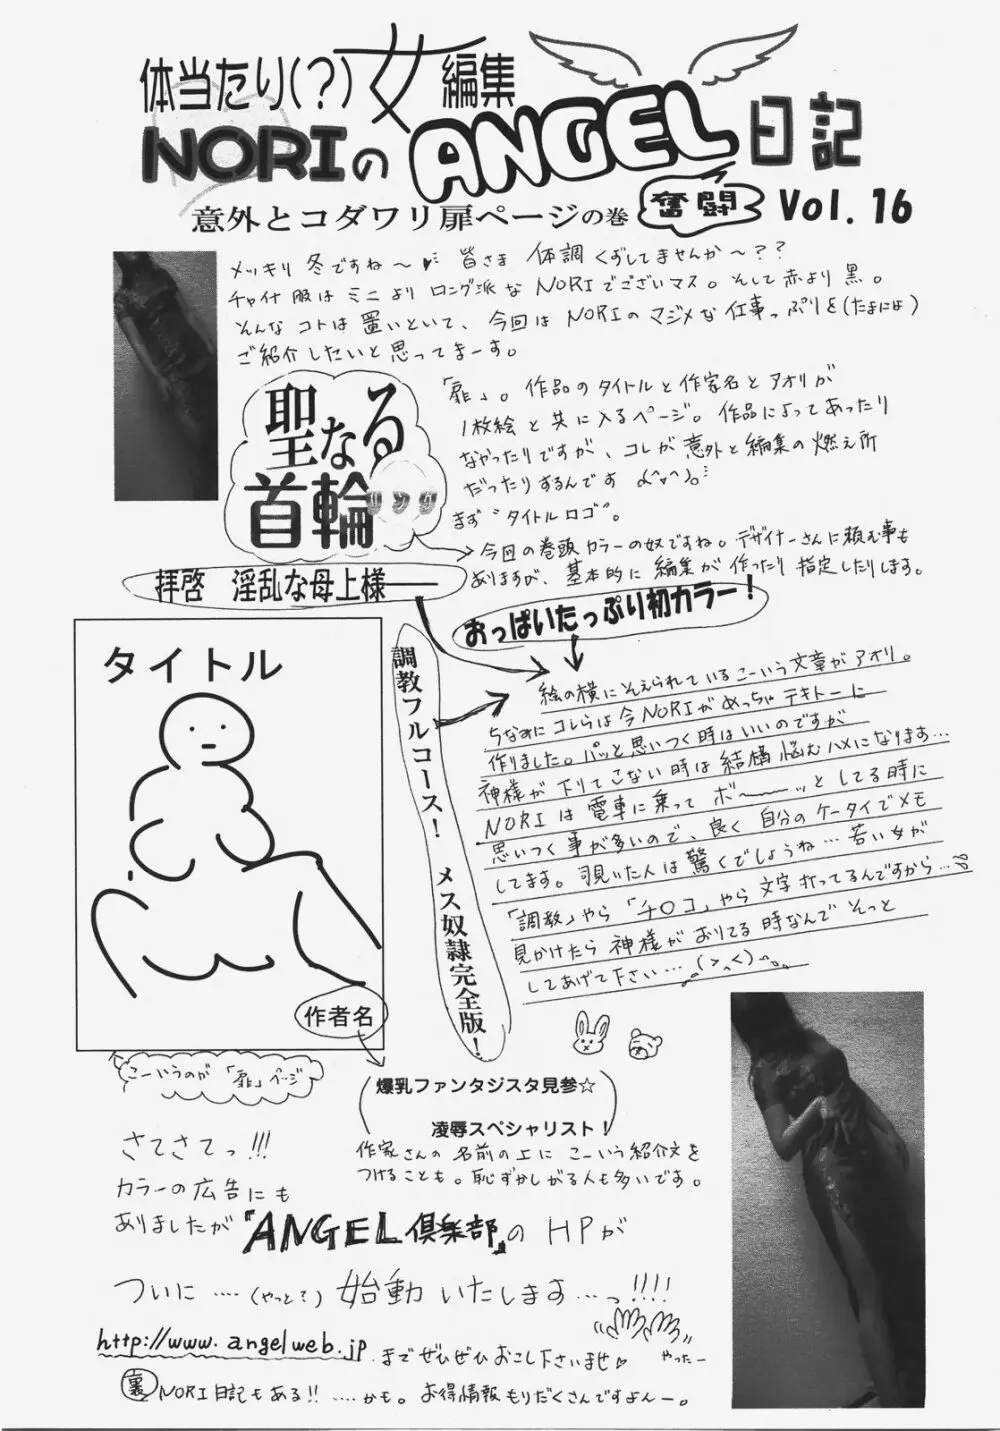 体当たり(？)女編集
NORIのANGEL日記
意外とコダワリ扉ページの巻 奮闘 Vol. 16
メッキリ冬ですね〜 皆さま 体調くずしてませんか〜？？
チャイナ服はミニよりロング派なNORIでございマス。そして赤より黒。
そんなコトは置いといて、今回はNORIのマジメな仕事っぷりを(たまにはよ)
ご紹介したいと思ってまーす。
聖なる
首輪
「扉」。作品のタイトルと作家名とアオリが
1枚絵と共に入るページ。作品によってあったり
なかったりですが、コレが意外と編集の燃え所
だったりするんです
まず"タイトルロゴ"。
今回の巻頭カラーの奴ですね。デザイナーさんに頼む事も
ありますが、基本的に編集が作ったり指定したりします。
拝啓 淫乱な母上様
おっぱいたっぷり初カラー！
調教フルコース！ メス奴隷完全版！
絵の横にそえられているこーいう文章がアオリ。
ちなみにコレらは今NORIがめっちゃテキトーに
作りました。パッと思いつく時はいいのですが
神様が下りてこない時は結構悩むハメになります…
NORIは電車に乗ってボ〜〜ッとしてる時に
思いつく事が多いので、良く自分のケータイでメモ
してます。覗いた人は驚くでしょうね…若い女が
「調教」やら「チ○コ」やら文字打ってるんですから…
見かけたら神様がおりてる時なんでそっと
してあげて下さい…(>､<)
タイトル
作者名
こーいうのが「扉」ページ
爆乳ファンタジスタ見参☆
凌辱スペシャリスト！
作家さんの名前の上にこーいう紹介文を
つけることも。恥ずかしがる人も多いです。
さてさてっ!!!
カラーの広告にも
ありましたが『ANGEL倶楽部』のHPが
ついに‥‥(やっと？)始動いたします…っ!!!!
やったー
http://www.angelweb.jp までぜひぜひおこし下さいませ
裏NORI日記もある!!‥‥かも。お得情報もりだくさんですよんー。